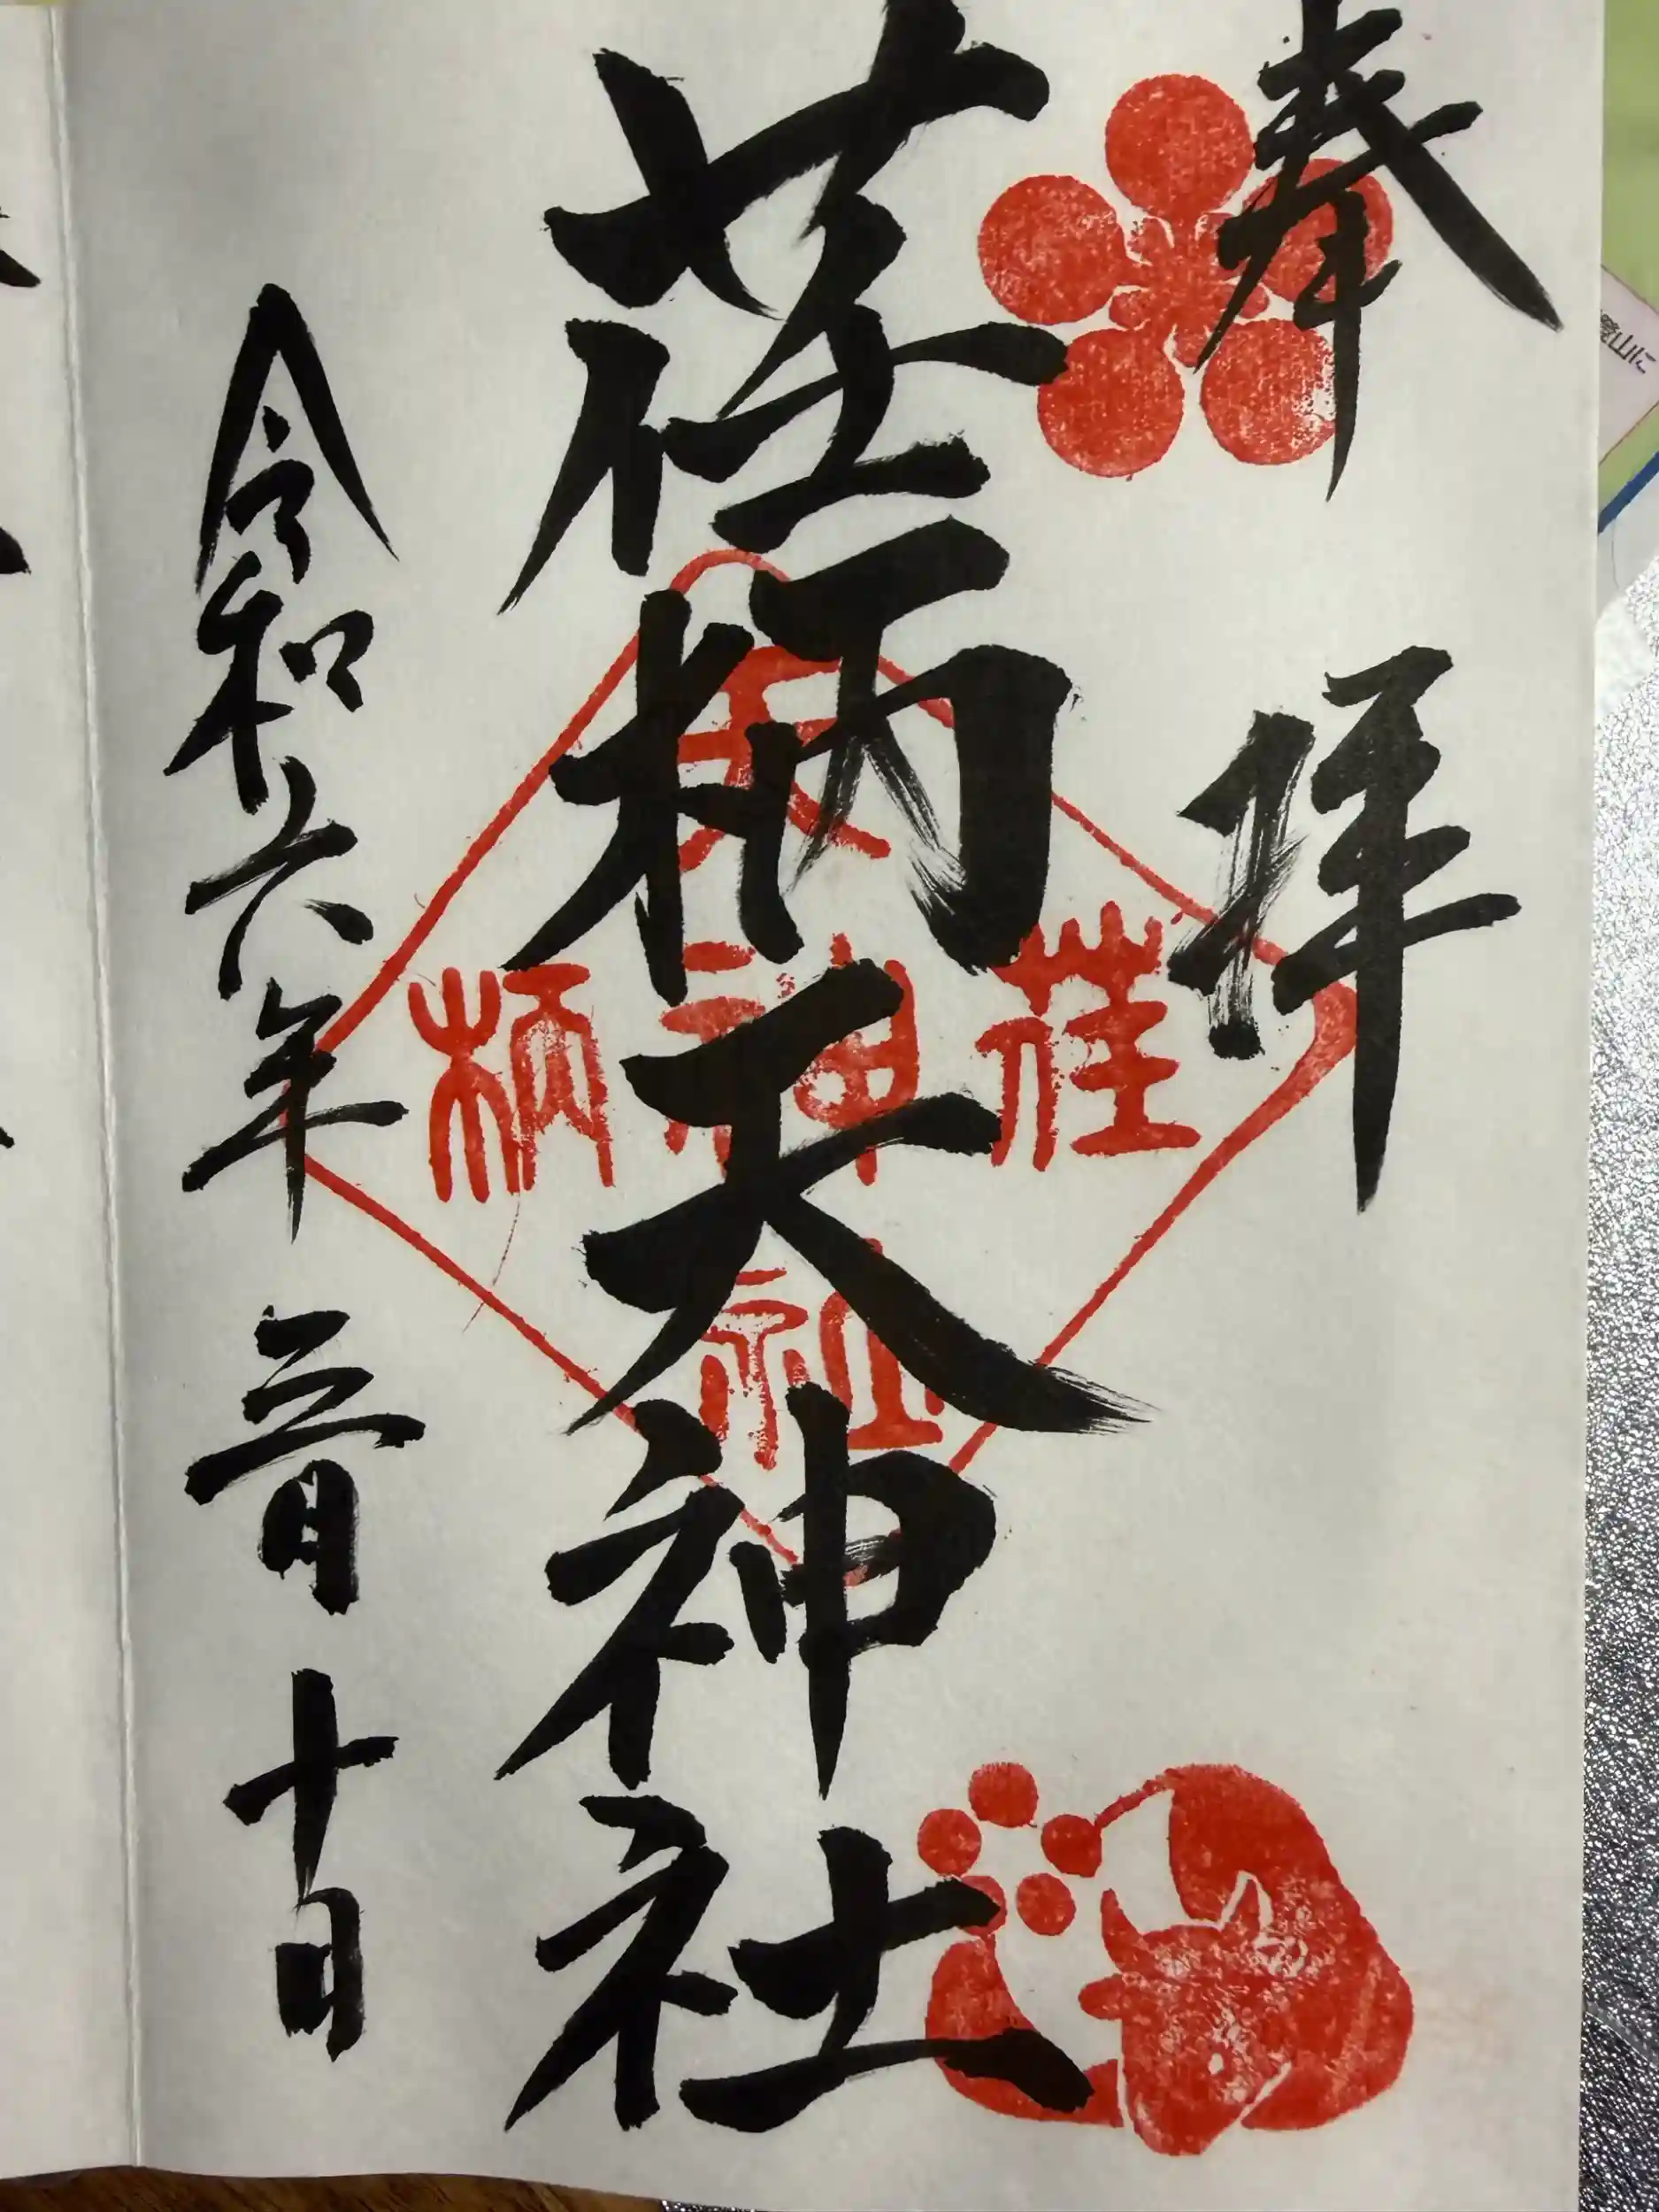 奉拝
荏柄天神社
荏柄天神社
令和六年 三月 十日
登山に